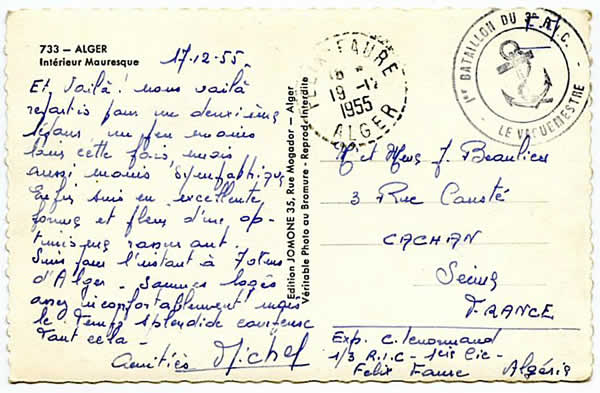 733 — ALGER
Intérieur Mauresque
17-12-55
Et voilà! nous voilà
repartis pour un deuxième
séjour, un peu moins
loin cette fois mais
aussi moins sympathique
Enfin suis en excellente
forme et plein d'un op-
timisme rassurant.
Suis pour l'instant à 70 kms
d'Alger - Sommes logés
assez inconfortablement mais
le temps splendide compense
tout cela -
Amitiés Michel
Edition JOMONE 35, Rue Mogador — Alger
Véritable Photo au Bromure - Reprod. Interdite
FELIX-FAURE
18 *
19 -12
1955
ALGER
1er BATAILLON DU 3e R.I.C.
LE VAGUEMESTRE
F.M.
M et Mme J. Beaulieu
3 Rue Cousté
CACHAN
Seine
FRANCE
Exp. C. Lenormand
1/3 R.I.C - 1ere Cie -
Felix Faure Algérie